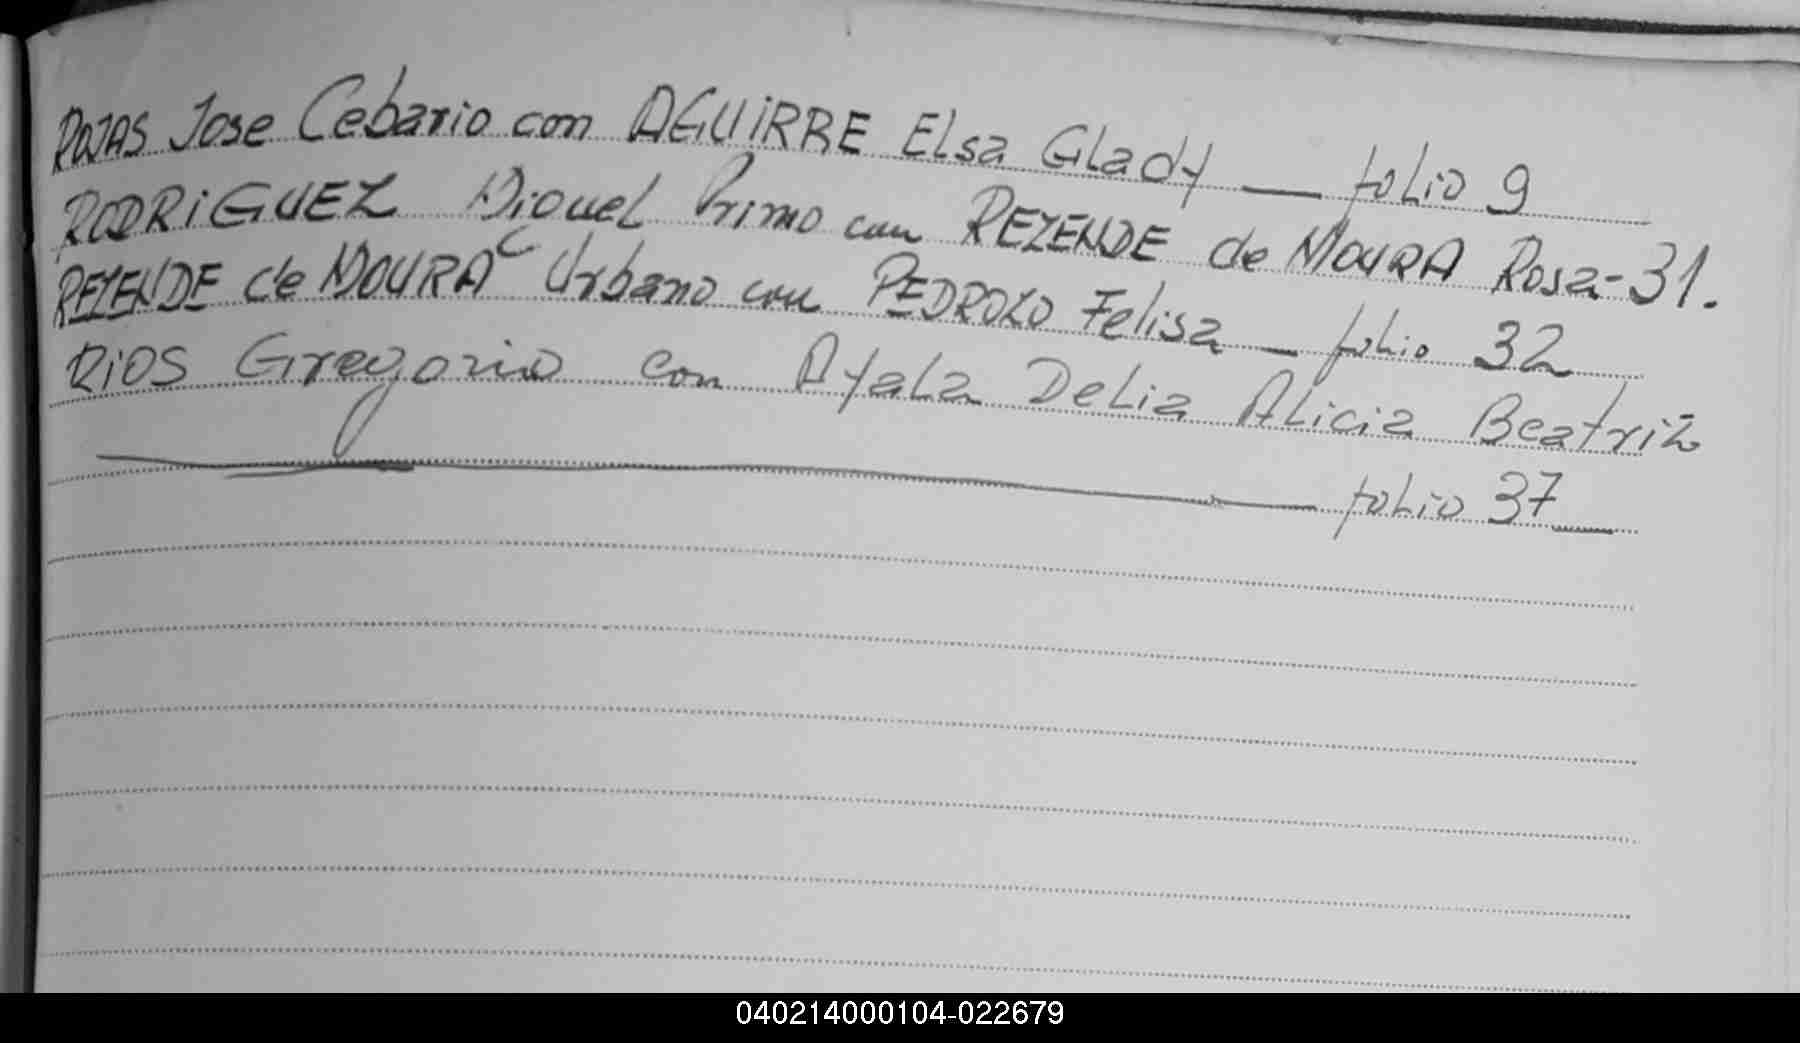 ROJAS Jose Cebario con AGUIRRE Elsa Glady — folio 9
RODRIGUEZ Miguel Primo con REZENDE de MOURA Rosa-31.
REZENDE de MOURA Urbano con PEDROZO Felisa — folio 32
RIOS Gregorio con Ayala Delia Alicia Beatriz
— folio 37 —
040214000104-022679